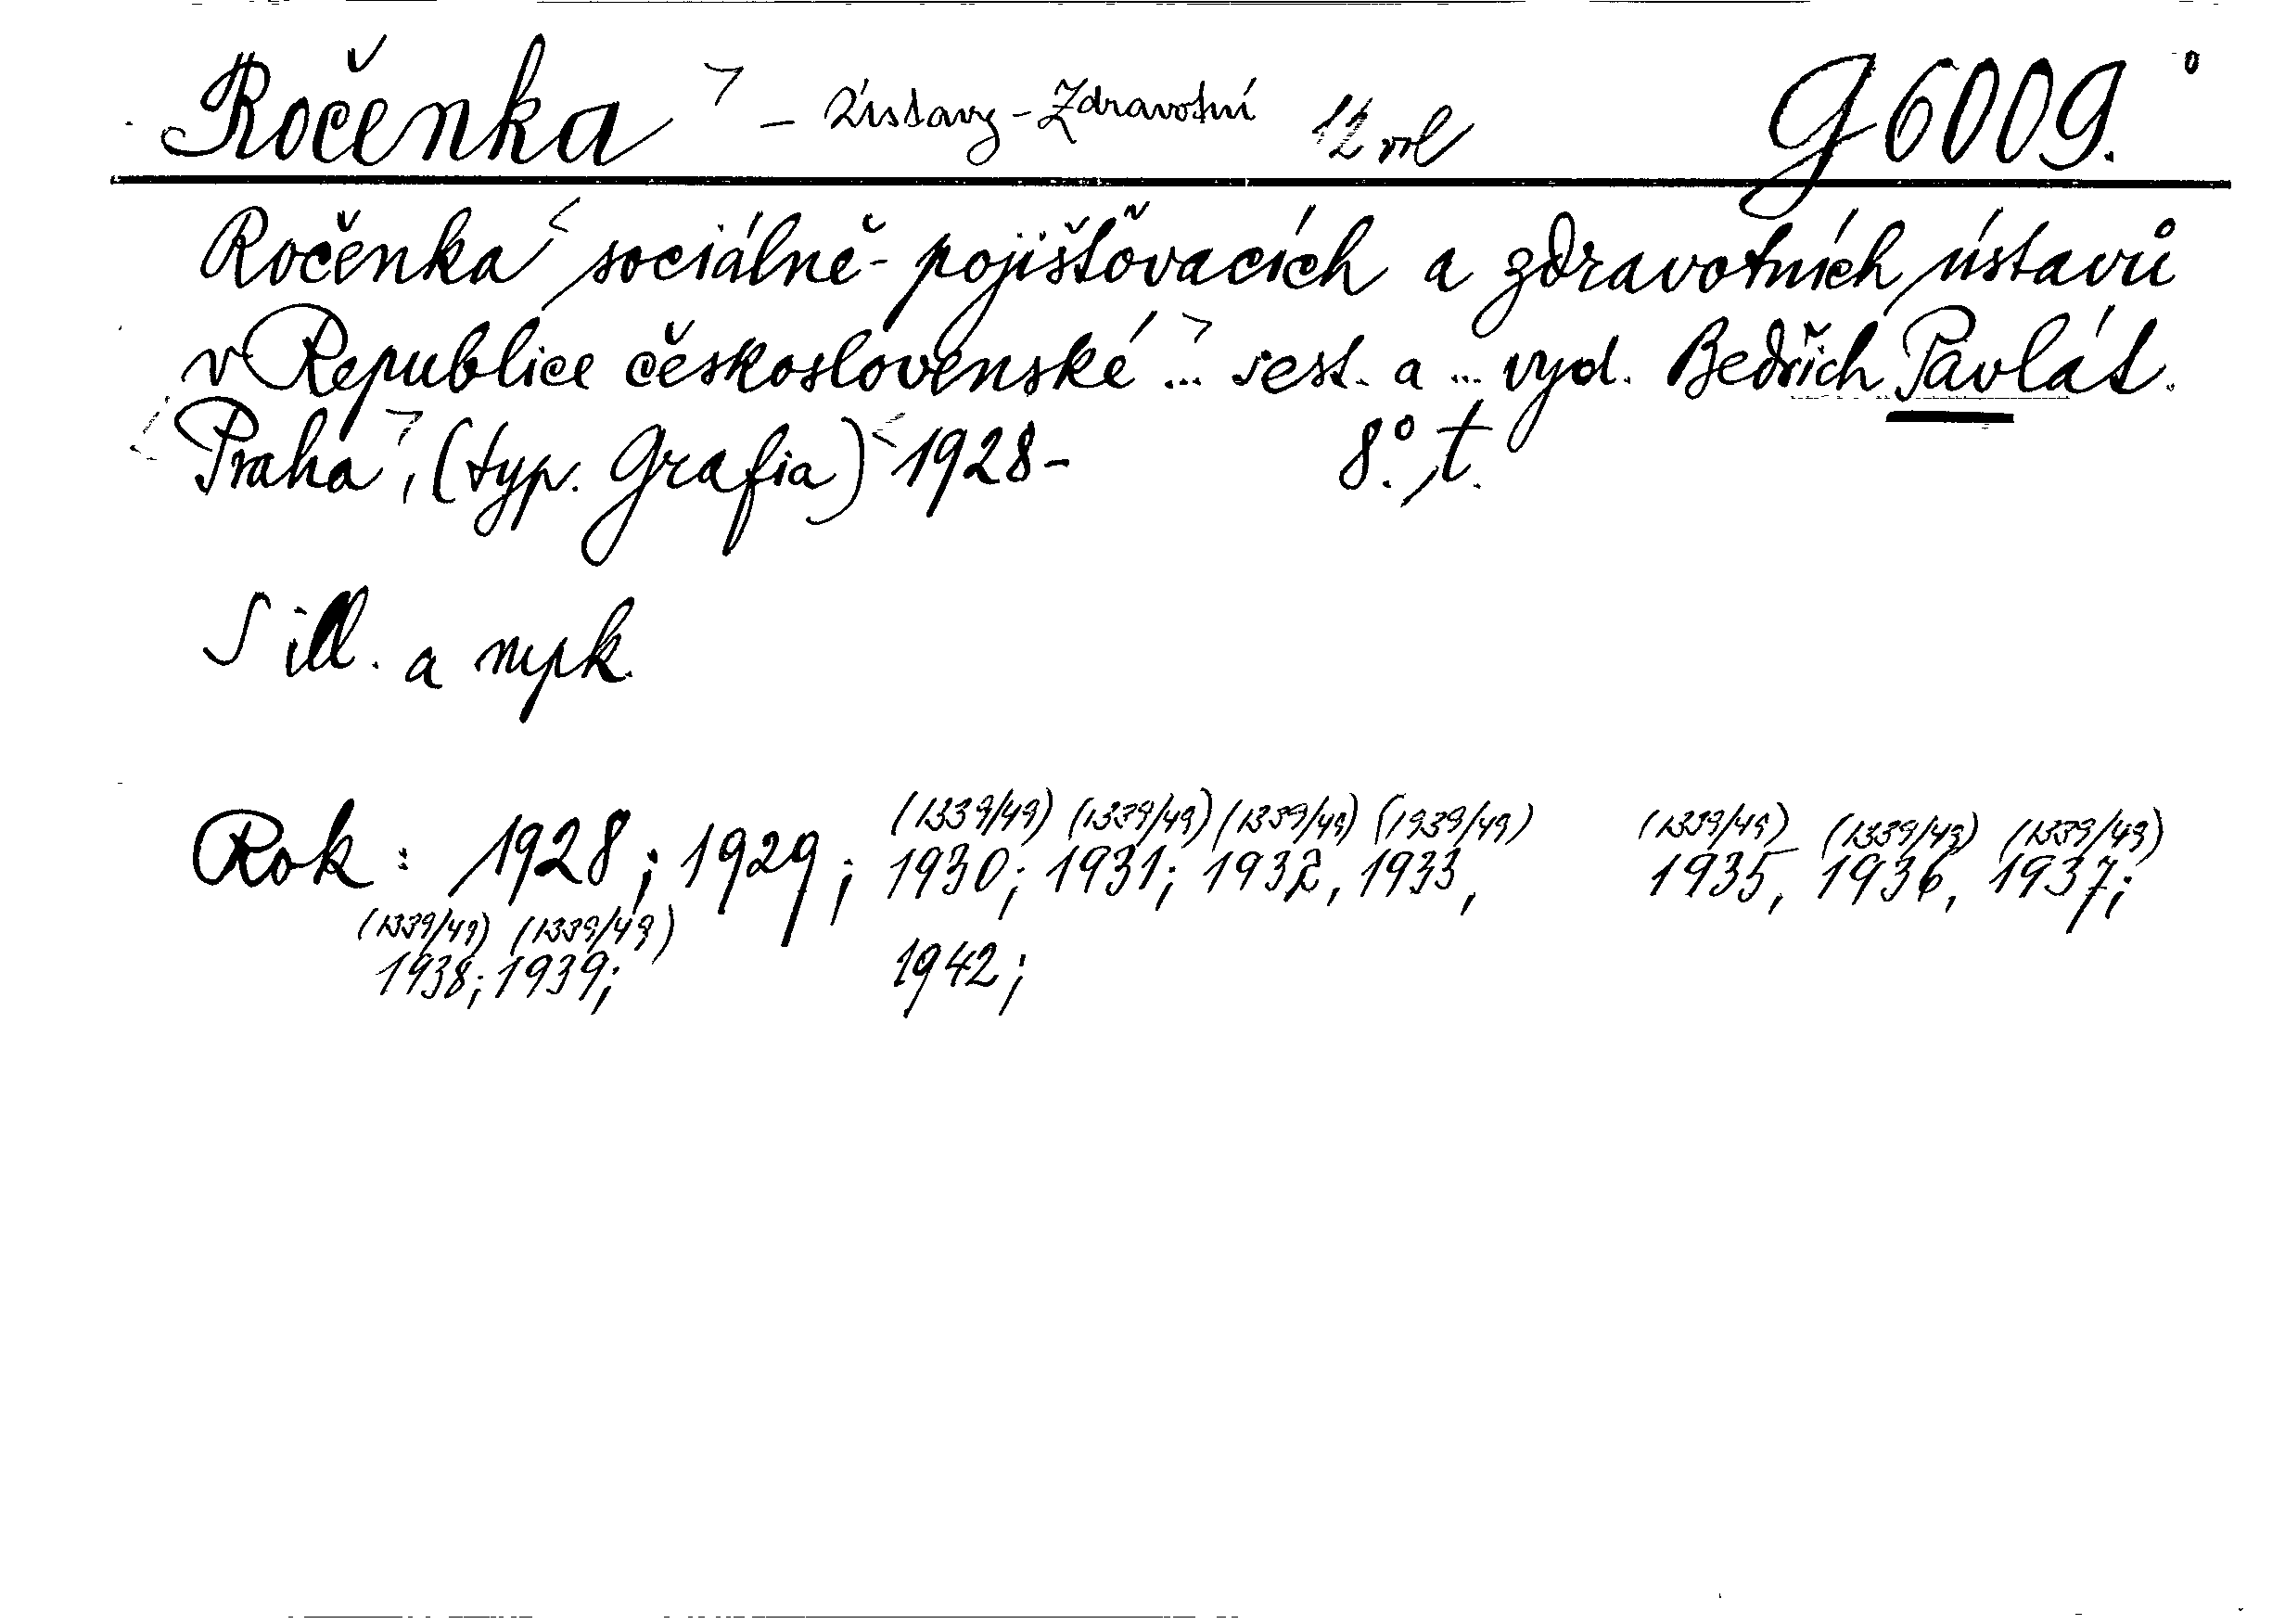 Ročenka - Ústavy - Zdravotní 12 vol G 6009.
Ročenka sociálně-pojišťovacích a zdravotních ústavů
v Republice československé ... sest. a ... vyd. Bedřich Pavlát.
Praha, (typ. Grafia) 1928- 8°., t.
S ill. a mpk.
(1339/49) (1339/49) (1339/49) (1939/49) (1339/49) (1339/49) (1339/49)
Rok : 1928 ; 1929 ; 1930 ; 1931 ; 1932, 1933, 1935, 1936, 1937;
(1339/49) (1339/49)
1938; 1939; 1942;